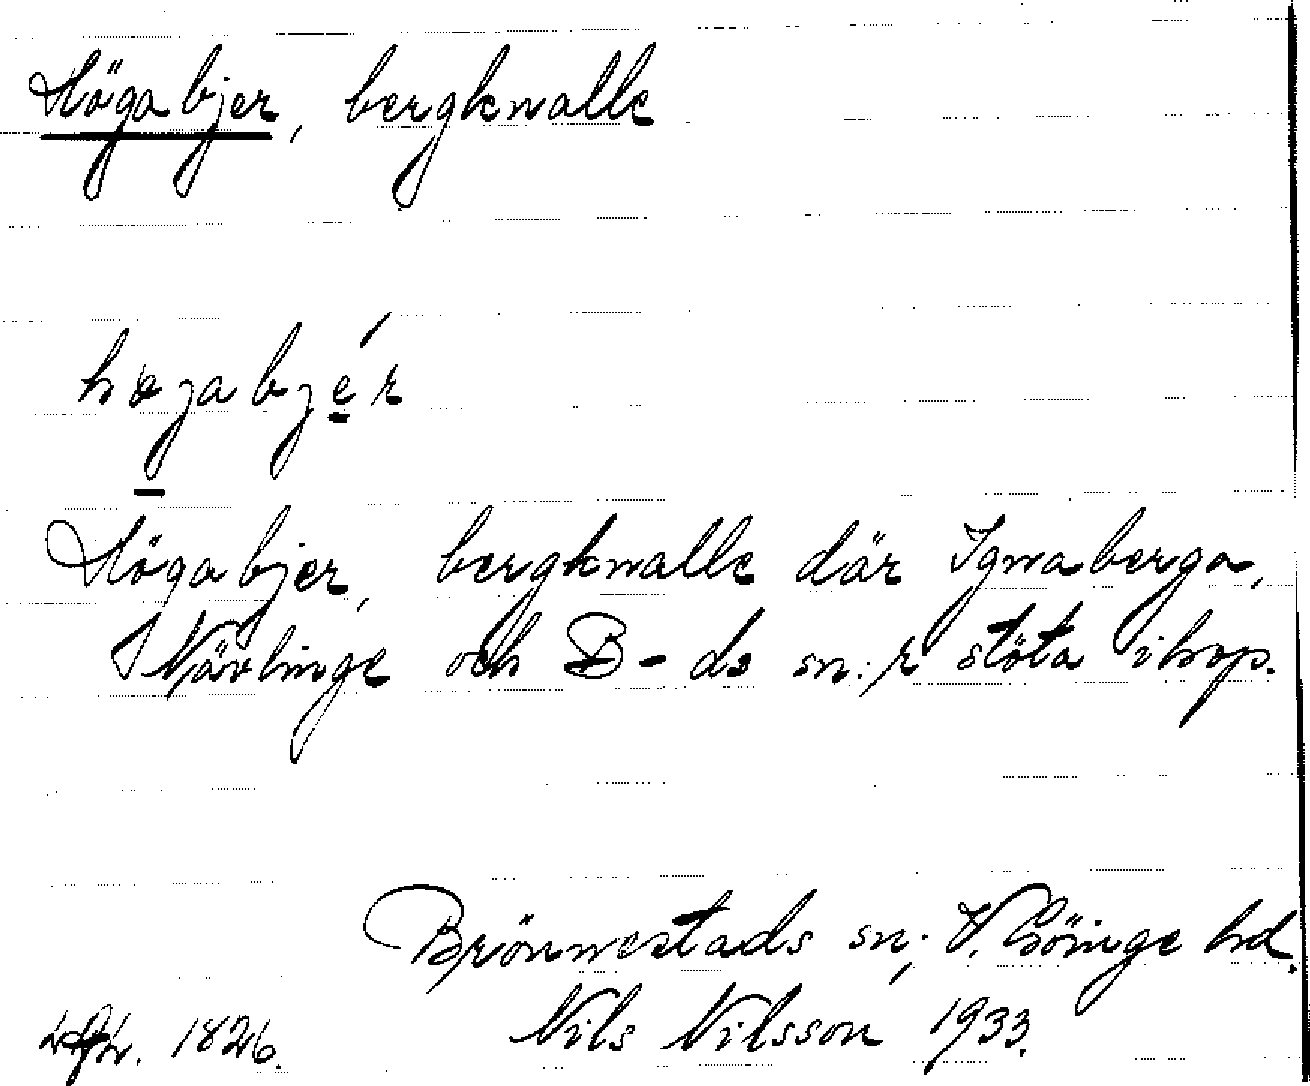 Högabjer, bergknalle
højabjér
Högabjer, bergknalle där Ignaberga,
Nävlinge och B-ds sn:r stöta ihop.
Brönnestads sn; V. Göinge hd.
1826. Nils Nilsson 1933.